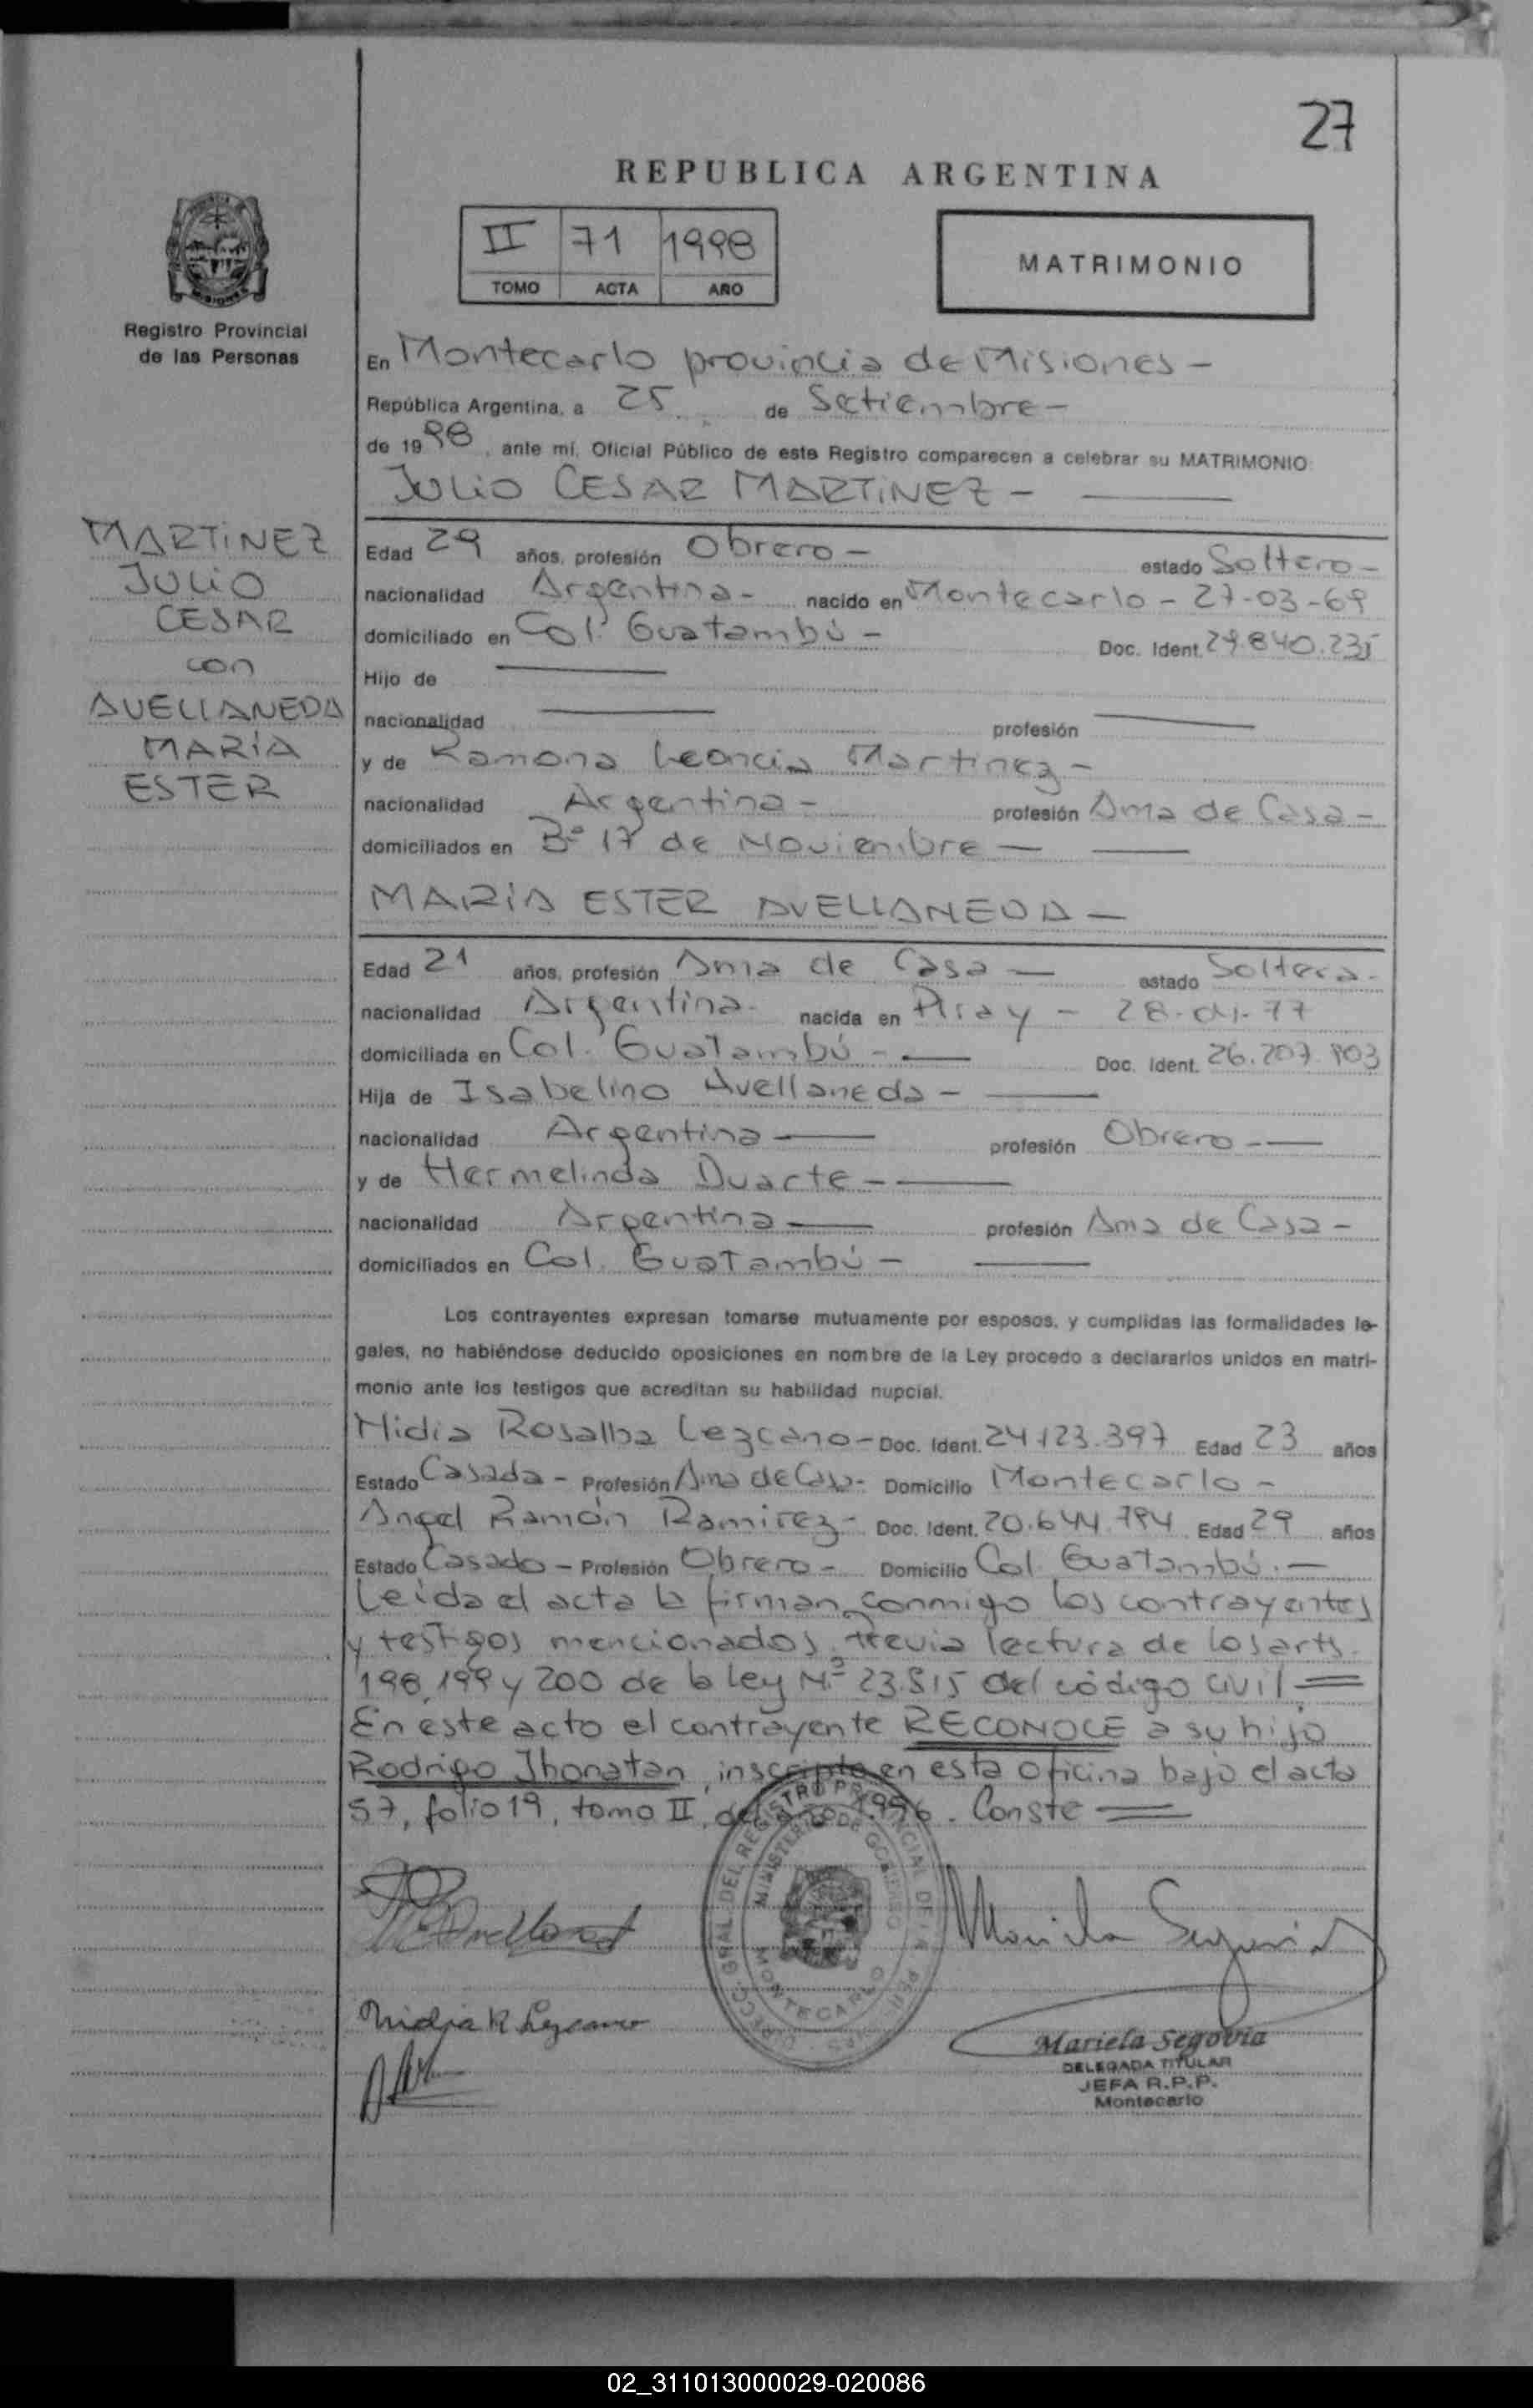 27
REPUBLICA ARGENTINA
II 71 1998
TOMO ACTA AÑO
MATRIMONIO
Registro Provincial
de las Personas
En Montecarlo provincia de Misiones -
República Argentina, a 25 de Setiembre -
de 1998, ante mí, Oficial Público de este Registro comparecen a celebrar su MATRIMONIO:
JULIO CESAR MARTINEZ -
MARTINEZ
JULIO
CESAR
con
AVELLANEDA
MARÍA
ESTER
Edad 29 años, profesión Obrero - estado Soltero -
nacionalidad Argentina - nacido en Montecarlo - 27-03-69
domiciliado en Col. Guatambú - Doc. Ident. 29.840.235
Hijo de
nacionalidad profesión
y de Ramona Leoncia Martinez -
nacionalidad Argentina - profesión Ama de Casa -
domiciliados en Bº 17 de Noviembre -
MARIA ESTER AVELLANEDA -
Edad 21 años, profesión Ama de Casa - estado Soltera -
nacionalidad Argentina - nacida en Piray - 28-01-77
domiciliada en Col. Guatambú - Doc. Ident. 26.207.903
Hija de Isabelino Avellaneda -
nacionalidad Argentina profesión Obrero -
y de Hermelinda Duarte -
nacionalidad Argentina profesión Ama de Casa -
domiciliados en Col. Guatambú -
Los contrayentes expresan tomarse mutuamente por esposos, y cumplidas las formalidades le-
gales, no habiéndose deducido oposiciones en nombre de la Ley procedo a declararlos unidos en matri-
monio ante los testigos que acreditan su habilidad nupcial.
Nidia Rosalba Lezcano - Doc. Ident. 24.123.397 Edad 23 años
Estado Casada - Profesión Ama de Casa - Domicilio Montecarlo -
Angel Ramón Ramirez - Doc. Ident. 20.644.794 Edad 29 años
Estado Casado - Profesión Obrero - Domicilio Col. Guatambú. -
Leída el acta la firman conmigo los contrayentes
y testigos mencionados, previa lectura de los arts.
198, 199 y 200 de la ley Nº 23.515 del código civil =
En este acto el contrayente RECONOCE a su hijo
Rodrigo Jhonatan, inscripto en esta oficina bajo el acta
57, folio 19, tomo II, del año 1996. Conste =
DIRECC. GRAL. DEL REGISTRO PROVINCIAL DE LAS PERSONAS
MINISTERIO DE GOBIERNO
MONTECARLO
Nidia R Lezcano
Mariela Segovia
Mariela Segovia
DELEGADA TITULAR
JEFA R.P.P.
Montecarlo
02_311013000029-020086